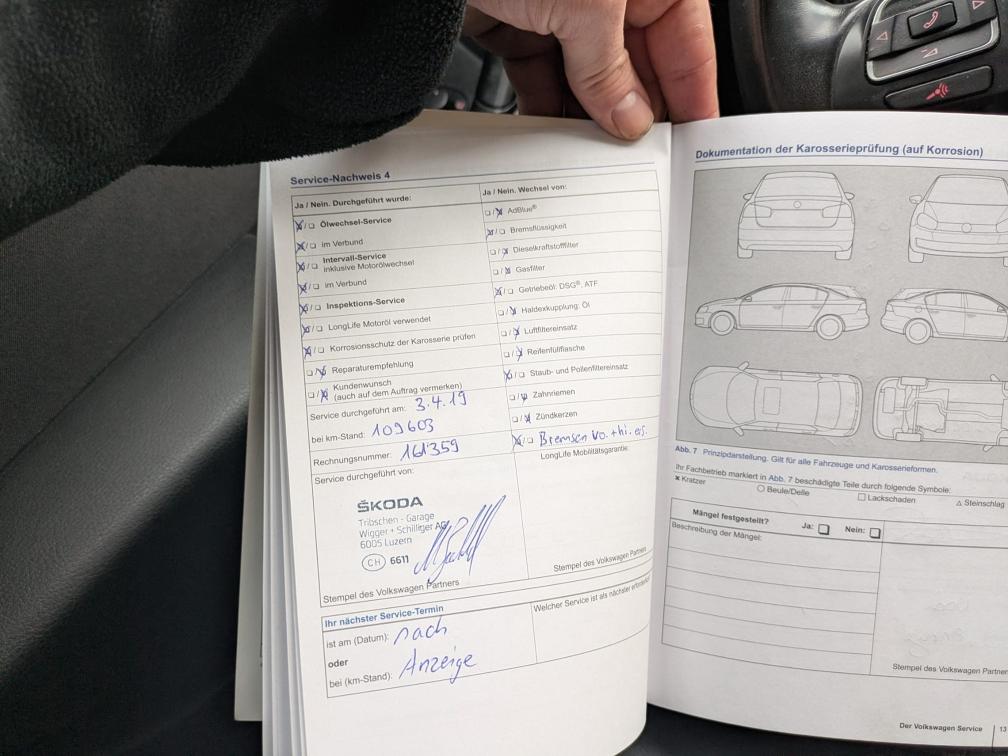 Service-Nachweis 4
Ja / Nein. Durchgeführt wurde:
Ölwechsel-Service
im Verbund
Intervall-Service
inklusive Motorölwechsel
im Verbund
Inspektions-Service
LongLife Motoröl verwendet
Korrosionsschutz der Karosserie prüfen
Reparaturempfehlung
Kundenwunsch
(auch auf dem Auftrag vermerken)
Service durchgeführt am: 3.4.19
bei km-Stand: 109603
Rechnungsnummer: 161359
Service durchgeführt von:
ŠKODA
Tribschen - Garage
Wigger + Schilliger AG
6005 Luzern
CH 6611
Stempel des Volkswagen Partners
Ja / Nein. Wechsel von:
AdBlue®
Bremsflüssigkeit
Dieselkraftstofffilter
Gasfilter
Getriebeöl: DSG®, ATF
Haldexkupplung: Öl
Luftfiltereinsatz
Reifenfüllflasche
Staub- und Pollenfiltereinsatz
Zahnriemen
Zündkerzen
Bremsen vo. + hi. ers.
LongLife Mobilitätsgarantie:
Stempel des Volkswagen Partners
Ihr nächster Service-Termin
ist am (Datum): nach
oder
bei (km-Stand): Anzeige
Welcher Service ist als nächster erforderlich
Dokumentation der Karosserieprüfung (auf Korrosion)
Abb. 7 Prinzipdarstellung. Gilt für alle Fahrzeuge und Karosserieformen.
Ihr Fachbetrieb markiert in Abb. 7 beschädigte Teile durch folgende Symbole:
× Kratzer
○ Beule/Delle
□ Lackschaden
△ Steinschlag
Mängel festgestellt? Ja: Nein:
Beschreibung der Mängel:
Stempel des Volkswagen Partner
Der Volkswagen Service 13